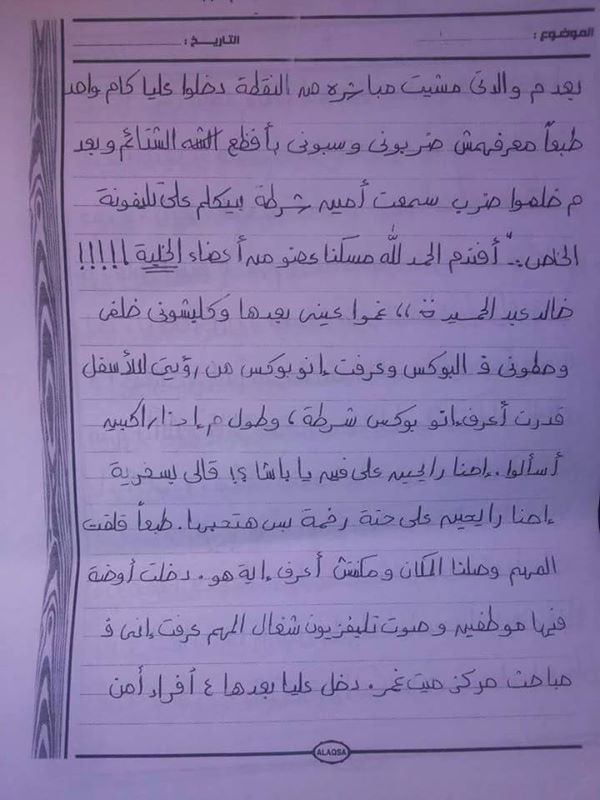 الموضوع : التاريخ :
بعد م والدتى مشيت مباشره من النقطة دخلوا عليا كام واحد
طبعاً معرفهمش ضربونى وسبونى بأفظع الشتائم وبعد
م خلصوا ضرب سمعت أمين شرطة بيكلم على تليفونة
الخاص :ـ " أفندم الحمد لله مسكنا عضو من أعضاء الخلية !!!!!
خالد عبد الحميد ،، غموا عينى بعدها وكلبشونى خلفى
وحطونى ف البوكس وعرفت إنو بوكس من رؤيتى للأسفل
قدرت أعرف إنو بوكس شرطة ، وطول م إحنا راكبين
أسألوا . إحنا رايحين على فين يا باشا ؟! قالى بسخرية
إحنا رايحين على حتة رخمة بس هتحبها . طبعاً قلقت
المهم وصلنا المكان ومكنتش أعرف إية هو . دخلت أوضة
فيها موظفين وصوت تليفزيون شغال المهم عرفت إنى ف
مباحث مركز ميت غمر . دخل عليا بعدها ٤ أفراد أمن
ALAQSA